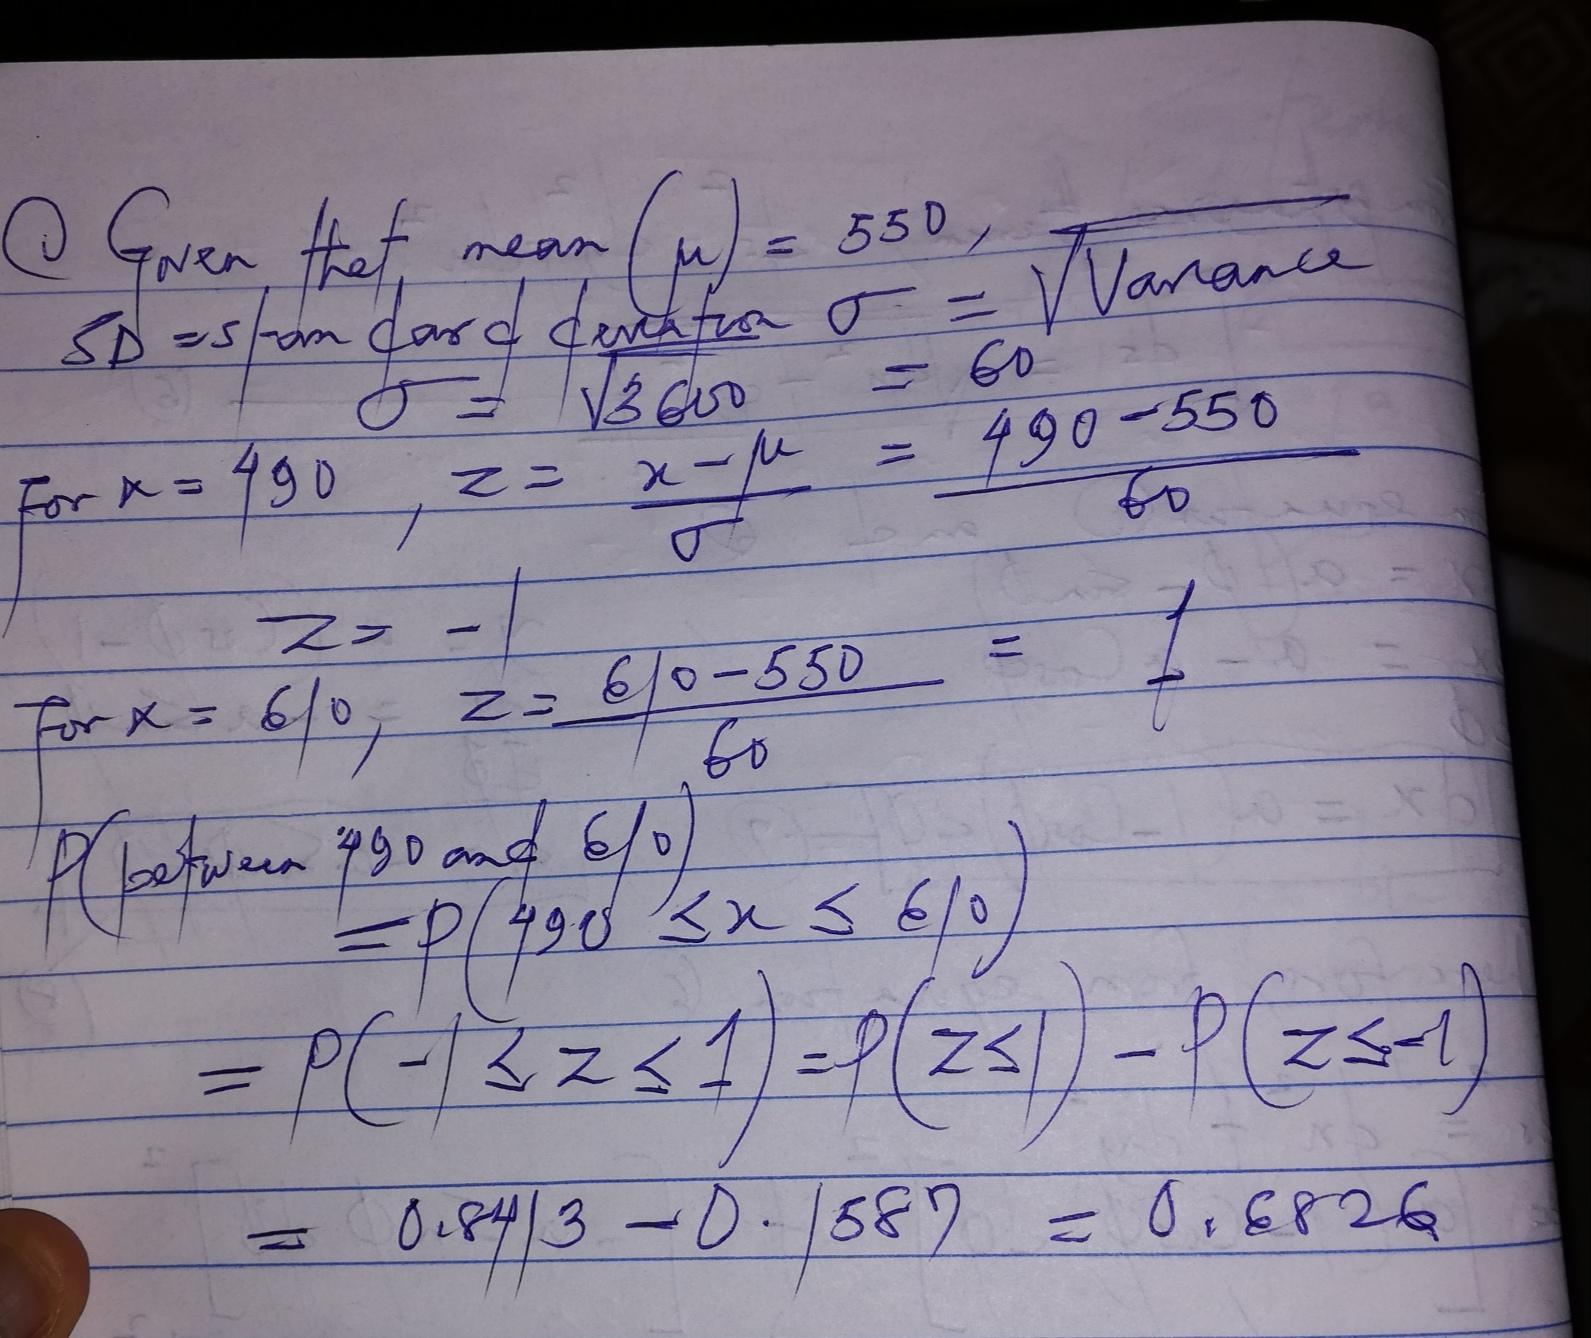 ① Given that mean (μ) = 550,
SD = standard deviation σ = √Variance
σ = √3600 = 60
For x = 490, z = x-μ/σ = 490-550/60
z = -1
For x = 610, z = 610-550/60 = 1
P(between 490 and 610)
= P(490 ≤ x ≤ 610)
= P(-1 ≤ z ≤ 1) = P(z≤1) - P(z≤-1)
= 0.8413 - 0.1587 = 0.6826